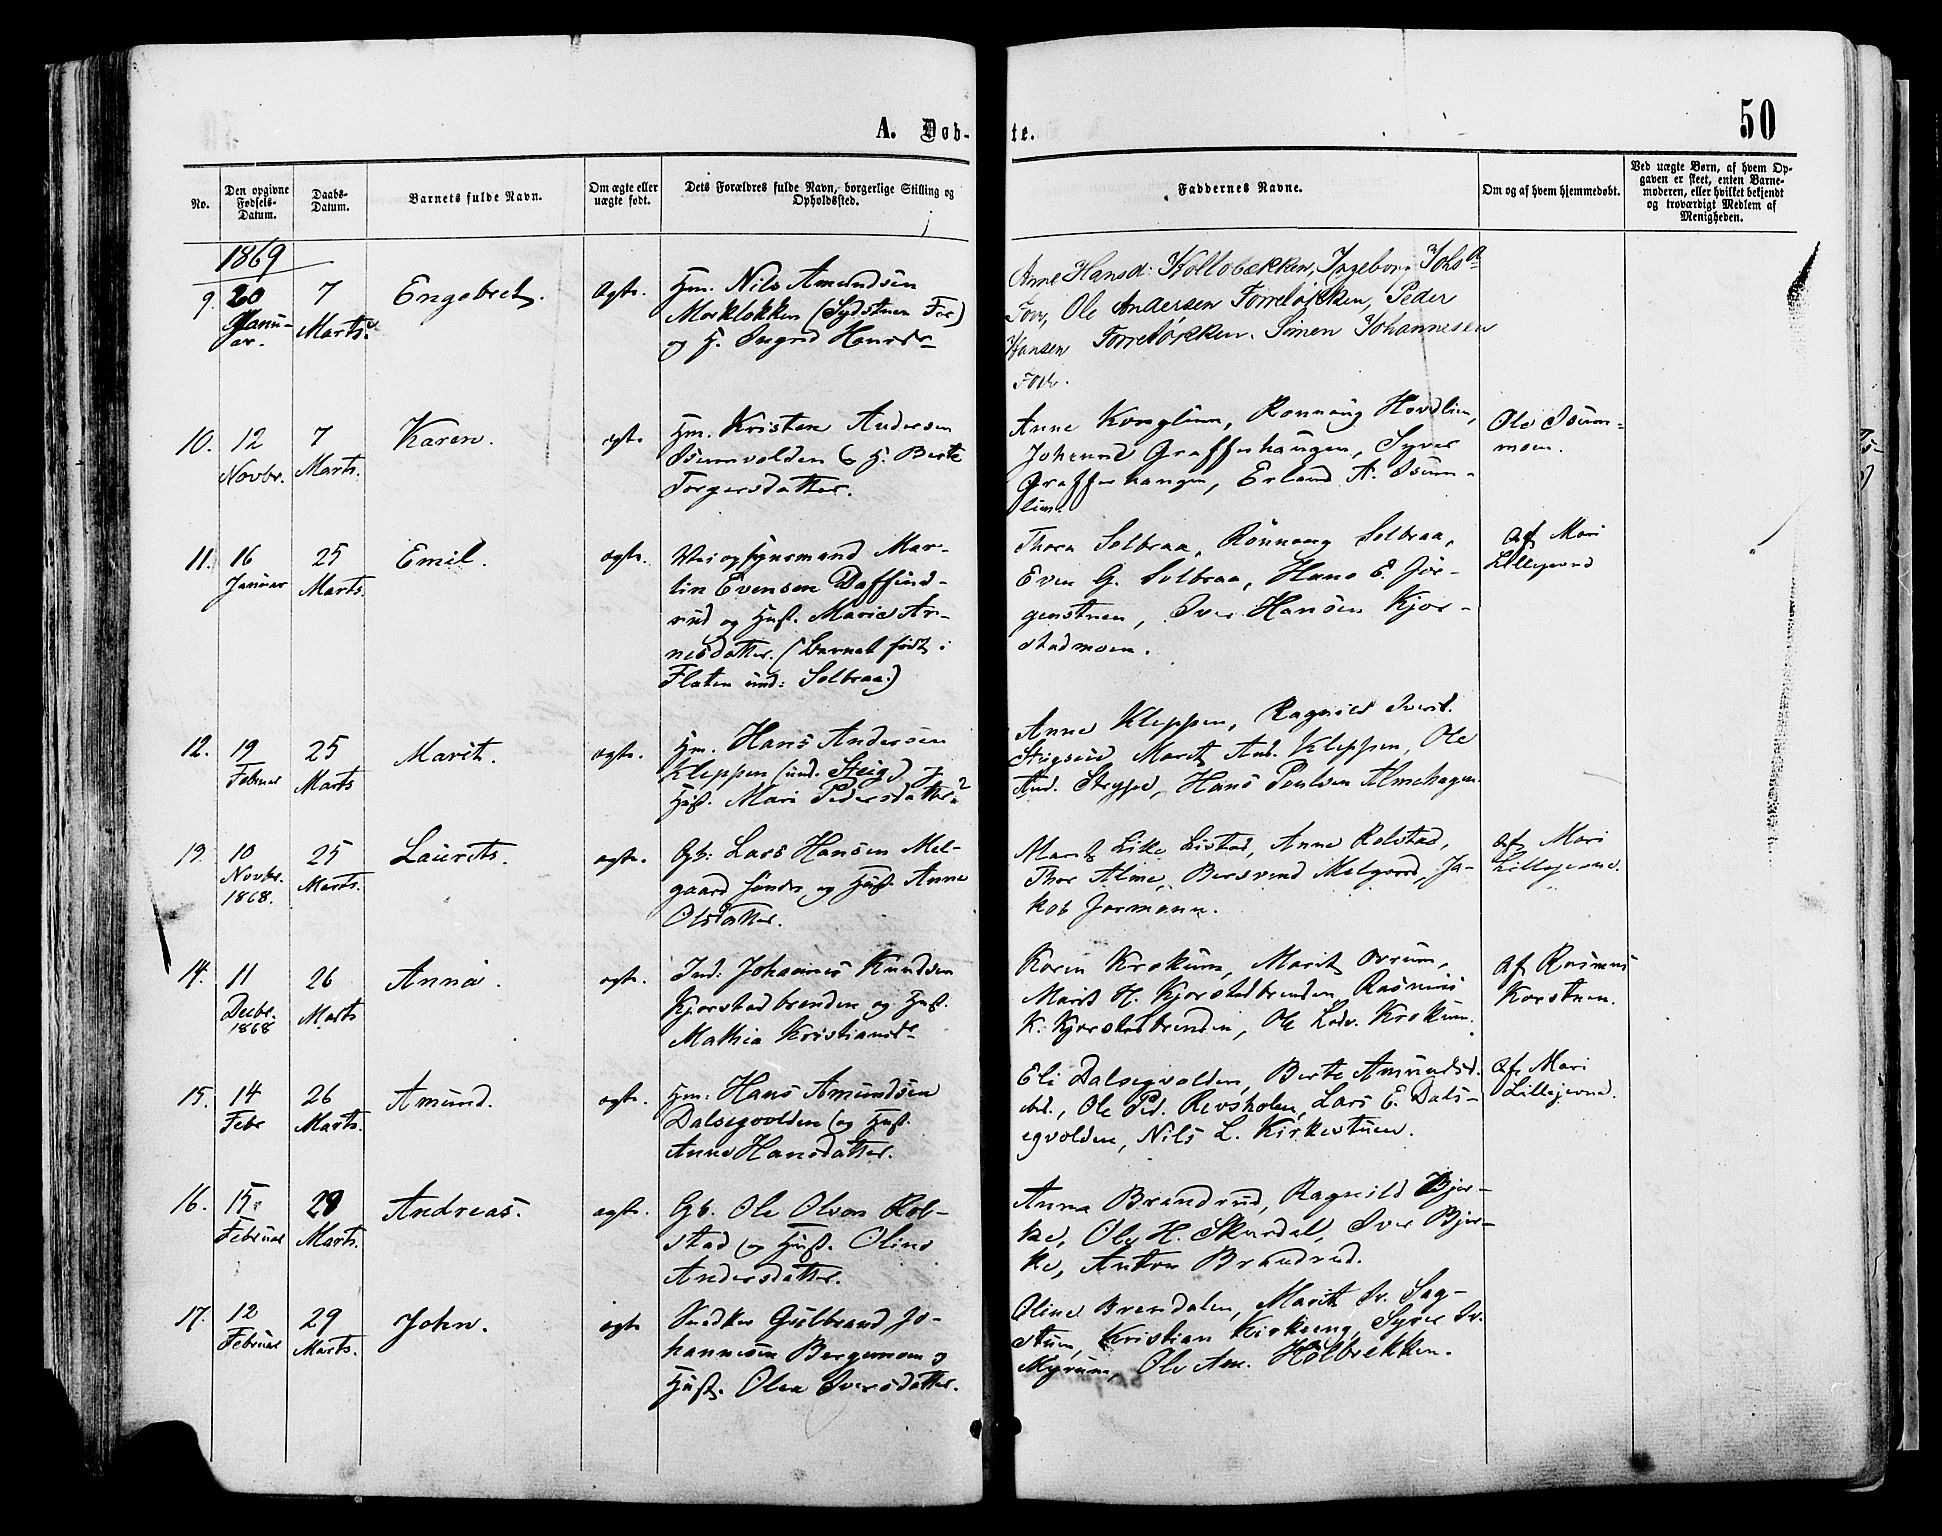 50
A. Døb-
te.
No.
Den opgivne
Fødsels-
Datum.
Daabs-
Datum.
Barnets fulde Navn.
Om ægte eller
uægte født.
Dets Forældres fulde Navn, borgerlige Stilling og
Opholdssted.
Faddernes Navne.
Om og af hvem hjemmedøbt.
Ved uægte Børn, af hvem Op-
gaven er skeet, enten Barne-
moderen, eller hvilket bekjendt
og troværdigt Medlem af
Menigheden.
1869
9.
20
Janu-
ar.
7
Marts.
Engebret.
ægte.
Hm. Nils Amundsen
(Sydstuen For)
og H. Ingrid Hansdr
Anne Hansd: Kollobækken, Ingebor. Johsdr
Forr, Ole Andersen Forreløkken, Peder
Hansen Forreløkken. Simen Johannesen
10.
12
Novbr.
7
Marts.
Karen.
ægte.
Hm. Kristen Andersen
Isumvolden & H. Berte
Torgersdatter.
Anne Konglien, Rønnaug Hovdlien,
Johannes Graffenhaugen, Syver
Graffenhaugen, Erland A. Isum-
lien.
Ole Isum-
moen.
11.
16
Januar
25
Marts.
Emil.
ægte.
Veiopsynsmand Mar-
tin Evensen Daffind-
rud og Hust. Marie Ar-
nesdatter. (Barnet født i
Flaten und: Solbraa.)
Thora Solbraa, Rønnaug Solbraa,
Even G. Solbraa, Hans E. Jør-
genstuen, Iver Hansen Kjør-
stadmoen.
af Mari
Lillejevnd
12.
19
Februar
25
Marts
Marit.
ægte.
Hm. Hans Andersen
Kleppen (und. Steig) og
Hust. Mari Pedersdatter.
Anne Kleppen, Ragnild Iversd.
Marit And. Kleppen, Ole
And. Hans Poulsen Almehagen
13.
10
Novbr.
1868.
25
Marts.
Laurits.
ægte.
Gb: Lars Hansen Mel-
gaard søndre og Hust. Anne
Olsdatter.
Marit Eike Listad, Anne Rolstad,
Thor Alme, Bersvend Melgaard, Ja-
kob Formann.
af Mari
Lillejevne.
14.
11
Decbr.
1868
26
Marts
Anna.
ægte.
Ind: Johannes Knudsen
Kjørstadbrenden og Hust.
Mathia Kristiansdr
Karen Krokum, Marit
Marit H. Kjørstadbrenden Rasmus
K. Kjørstadbrenden, Ole Krokum.
af Rasmus
Korstuen.
15.
14
Febr
26
Marts.
Amund.
ægte.
Hm: Hans Amundsen
Dalsegvolden (og Hust.
Anne Hansdatter.
Eli Dalsegvolden, Berte Amundsd.
ibid., Ole Ped. Revsholen, Lars E. Dals-
egvolden, Nils L. Kirkestuen.
af Mari
Lillejevnd.
16.
15.
Februar
29
Marts.
Andreas.
ægte.
Gb. Ole Olsen Rol-
stad (og Hust. Oline
Andersdatter.
Anna Brandrud, Ragnild Bjer-
ke, Ole H. Skurdal, Iver Bjer-
ke, Anton Brandrud.
17.
12
Februar
29
Marts.
John.
ægte
Snedker Gulbrand Jo-
hannesen Bergemoen og
Hust. Olea Iversdatter.
Oline Brendalen, Marit Iv. Sag-
stuen, Kristian Kirkeeng, Syver Iv.
Myrum, Ole Am. Holbrekken.